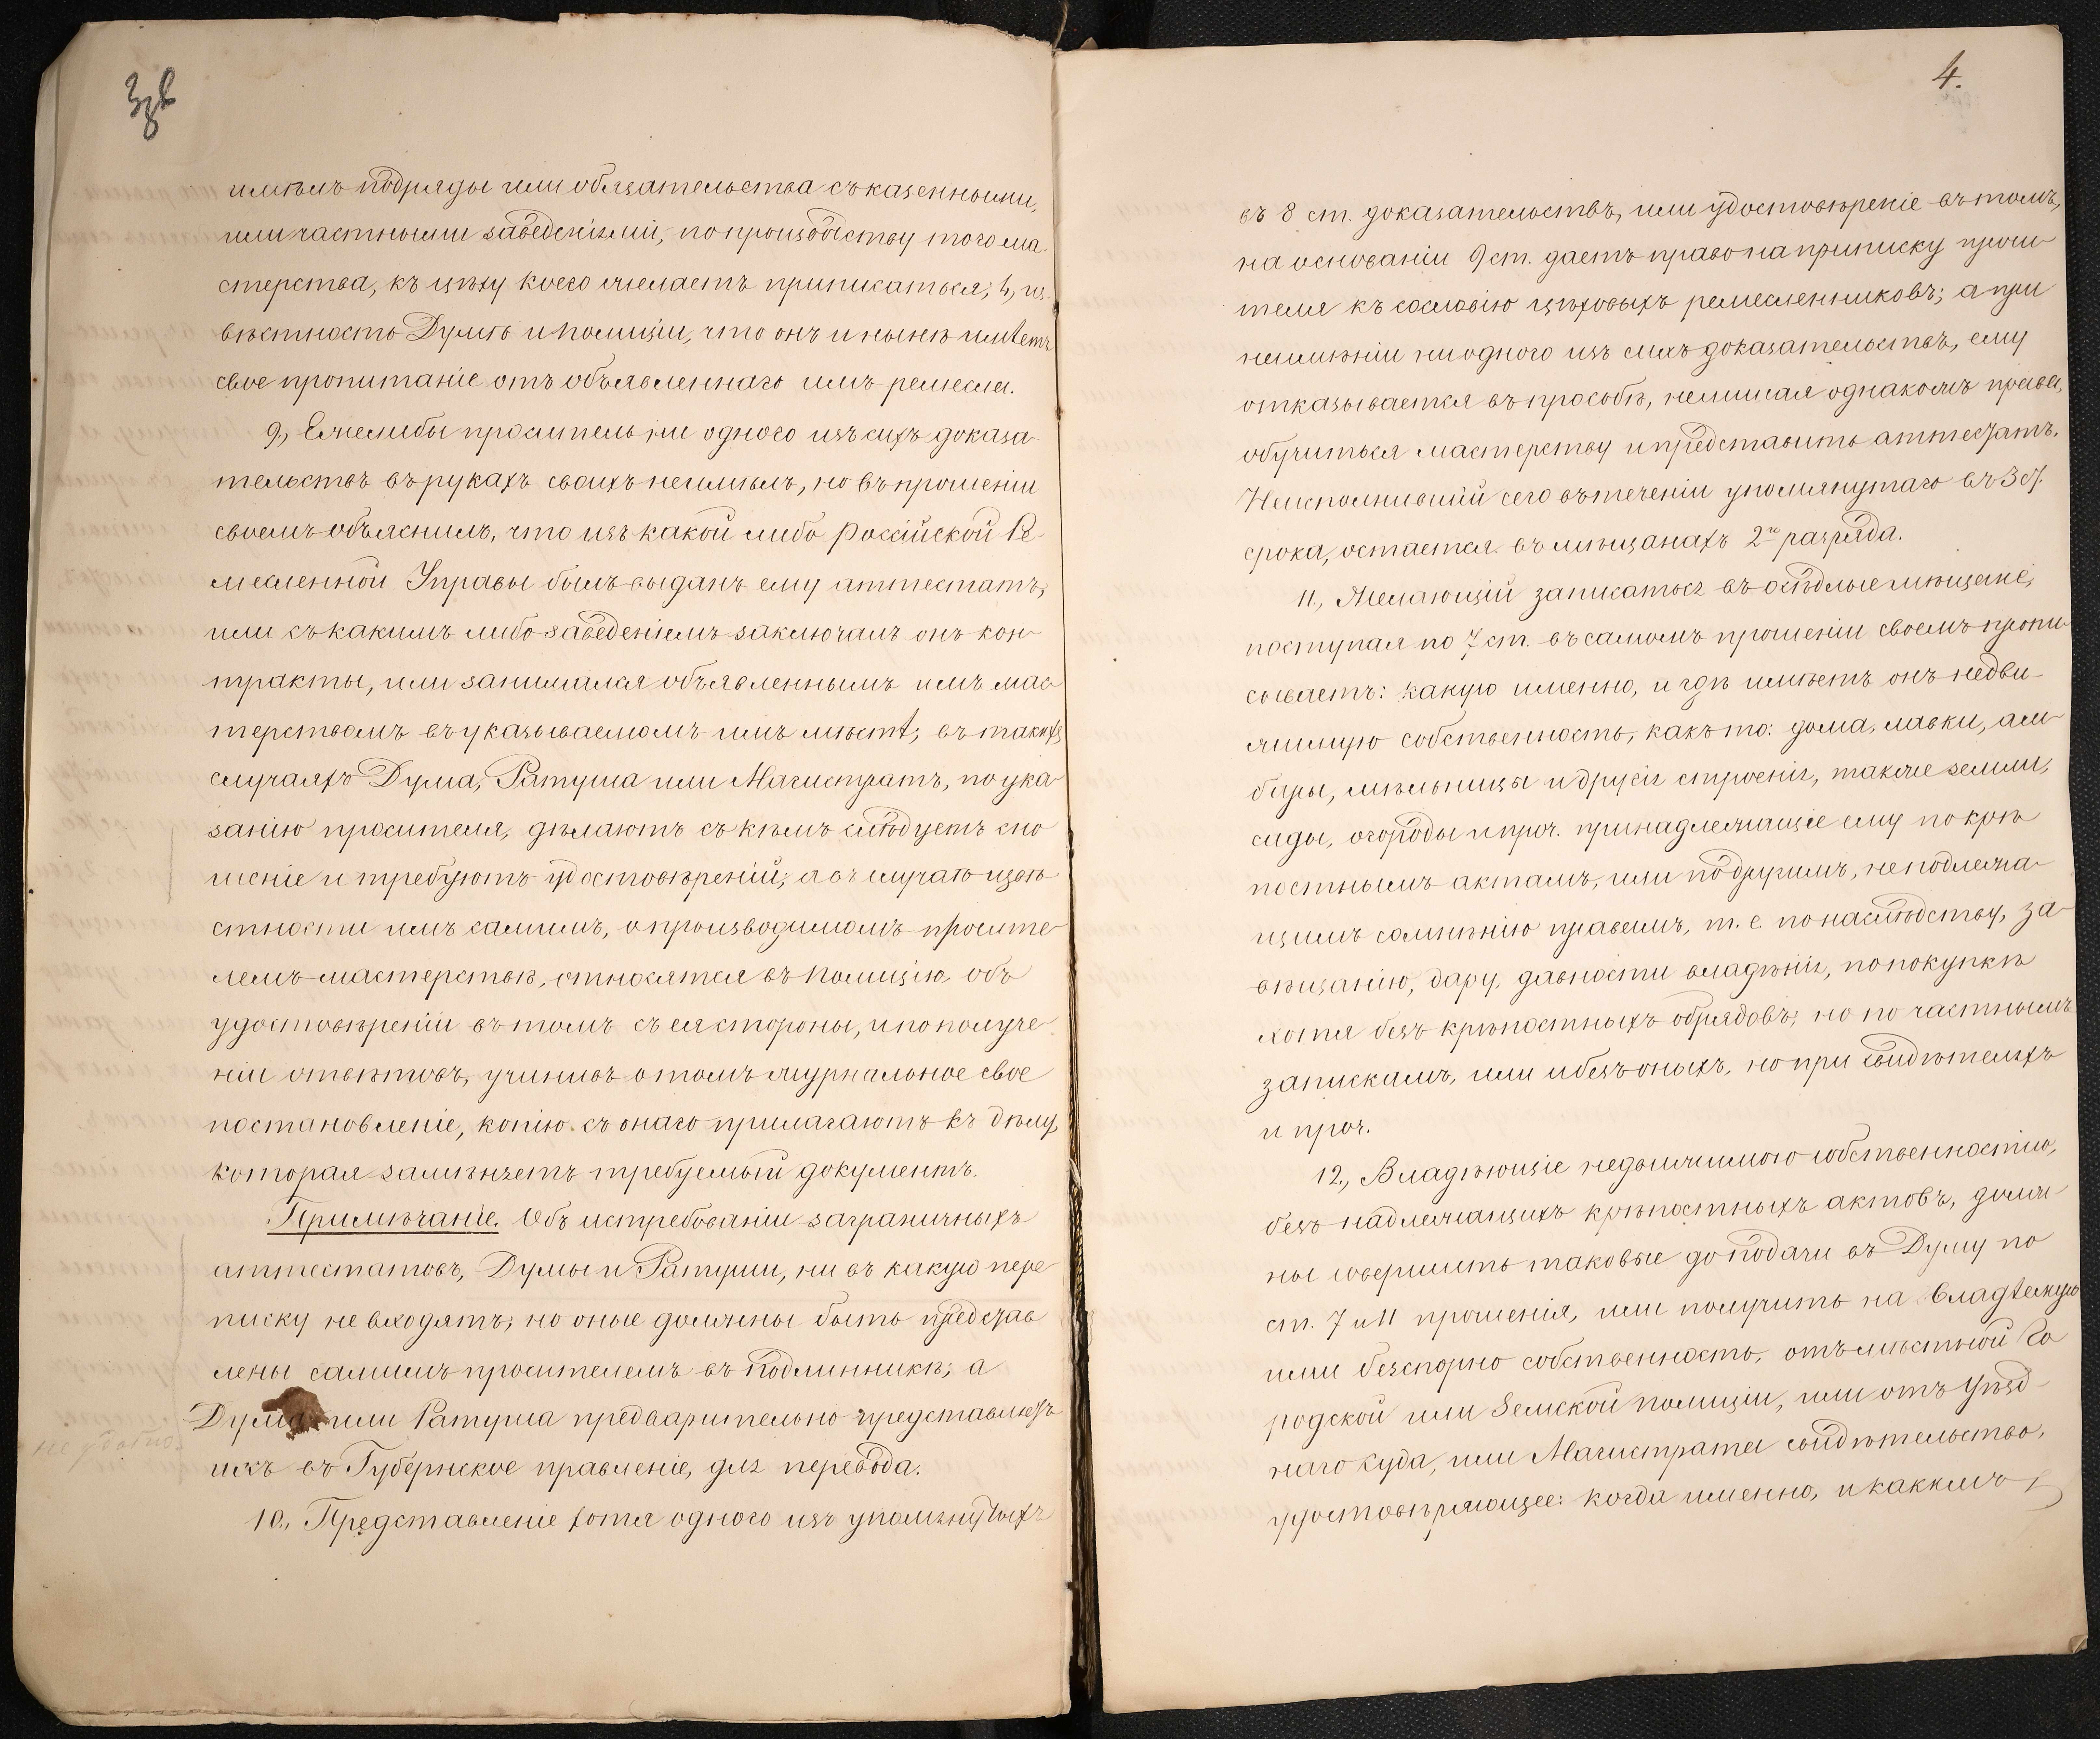 3об
имѣлъ подряды или обязательства съ казенными,
или частными заведеніями, по производству того ма-
стерства, къ цѣху коего желаетъ приписаться; 4, из-
вѣстность Думѣ и полиціи, что онъ и нынѣ имѣетъ
свое пропитаніе отъ объявленнаго имъ ремесла.
9., Ежелибы проситель ни одного изъ сихъ доказа-
тельствъ въ рукахъ своихъ неимѣлъ, но въ прошеніи
своемъ объяснилъ, что изъ какой либо россійской Ре-
месленной Управы былъ выданъ ему аттестатъ,
или съ какимъ либо заведеніемъ заключалъ онъ кон-
тракты, или занимался объявленнымъ имъ мас-
терствомъ въ указываемомъ имъ мѣстѣ; въ такихъ
случаяхъ Дума, Ратуша или Магистратъ, по ука-
занію просителя, дѣлаютъ съ кѣмъ слѣдуетъ сно
шеніе и требуютъ удостовѣреній; а въ случаѣ извѣ
стности имъ самимъ, о производимомъ просите-
лемъ мастерствѣ, относятся въ полицію, объ
удостовѣреніи въ томъ съ ея стороны, и по получе-
ніи отвѣтовъ, учинивъ о томъ журнальное свое
постановленіе, копію съ онаго прилагаютъ къ дѣлу,
которая замѣняетъ требуемый документъ.
Примѣчаніе. Объ истребованіи заграничныхъ
аттестатовъ, Думы и Ратуши, ни въ какую пере
писку не входятъ; но оные должены быть представ
лены самимъ просителемъ въ подлинникѣ; а
Дума или Ратуша предварительно представляютъ
не удобно.
ихъ въ Губернское правленіе, для перевода.
10., Представленіе хотя одного изъ упомянутыхъ
4.
въ 8 ст. доказательствъ, или удостовѣреніе въ томъ,
на основаніи 9 ст. даетъ право на приписку проси-
теля къ сословію цѣховыхъ ремесленниковъ; а при
неимѣніи ни одного изъ сихъ доказательствъ, ему
отказывается въ просьбѣ, нелишая однакожъ права,
обучиться мастерству и представить аттестатъ.
Неисполнившій сего въ теченіи упомянутаго въ 3 ст.
срока, остается въ мѣщанахъ 2го разряда.
11., Желающій записаться въ осѣдлые мѣщане,
поступая по 7 ст. въ самомъ прошеніи своемъ пропи-
сываетъ: какую именно, и гдѣ имѣетъ онъ недви-
жимую собственность, какъ то: дома, лавки, ам-
бары, мѣльницы и другія строенія, также земли,
сады, огороды и проч. принадлежащіе ему по крѣ
постнымъ актамъ, или по другимъ, не подлежа-
щимъ сомнѣнію правамъ, т. е. по наслѣдству, за-
вѣщанію, дару, давности владѣнія, по покупкѣ
хотя безъ крѣпостныхъ обрядовъ; но по частнымъ
запискамъ, или и безъ оныхъ, но при свидѣтеляхъ
и проч.
12., Владѣющіе недвижимою собственностію,
безъ надлежащихъ крѣпостныхъ актовъ, долж-
ны совершить таковые до подачи въ Думу по
ст. 7 и 11 прошенія, или получить на владѣемую
ими безспорно собственность, отъ мѣстной Го
родской или Земской полиціи, или отъ Уѣзд-
наго суда, или Магистрата свидѣтельство,
удостовѣряющее: когда именно, и какимъ